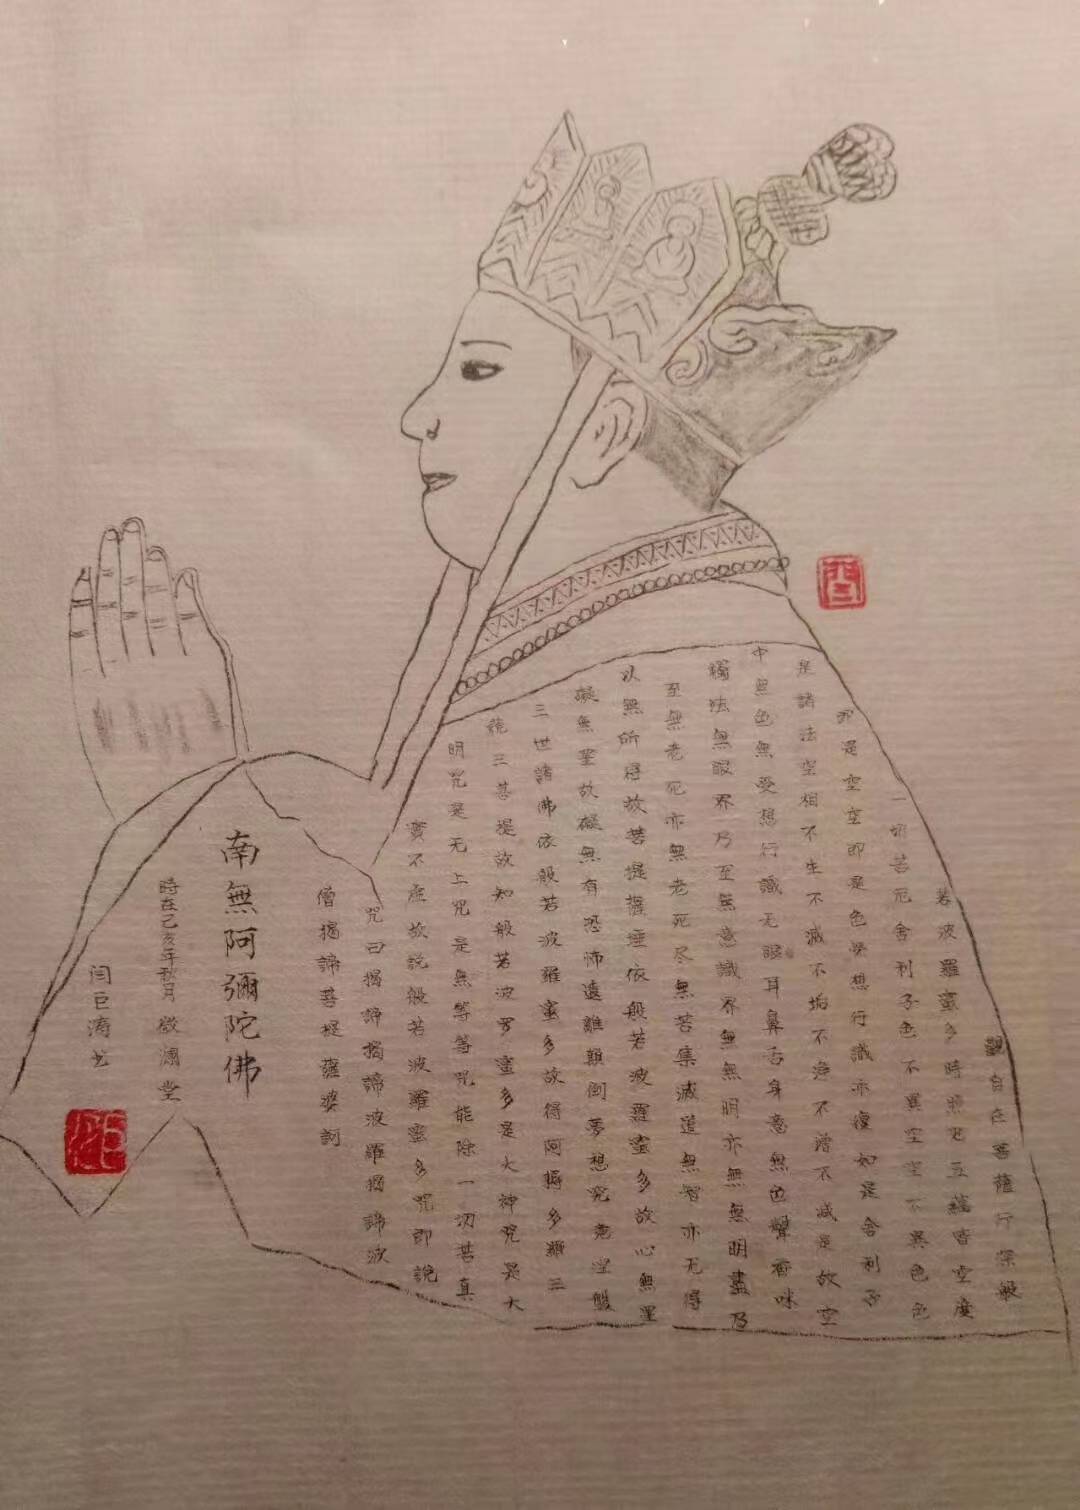 觀自在菩薩行深般
若波羅蜜多時照見五蘊皆空度
一切苦厄舍利子色不異空空不異色色
即是空空即是色受想行識亦復如是舍利子
是諸法空相不生不滅不垢不淨不增不減是故空
中無色無受想行識无眼耳鼻舌身意無色聲香味
觸法無眼界乃至無意識界無無明亦無無明盡乃
至無老死亦無老死尽無苦集滅道無智亦无得
以無所得故菩提薩埵依般若波羅蜜多故心無罣
礙無罣故礙無有恐怖遠離顛倒夢想究竟涅盤
三世諸佛依般若波羅蜜多故得阿耨多羅三
藐三菩提故知般若波罗蜜多是大神咒是大
明咒是无上咒是無等等咒能除一切苦真
實不虛故說般若波羅蜜多咒即說
咒曰揭諦揭諦波羅揭諦波
僧揭諦菩提薩婆訶
南無阿彌陀佛
時在己亥年秋月 微澜堂
闫巨涛书